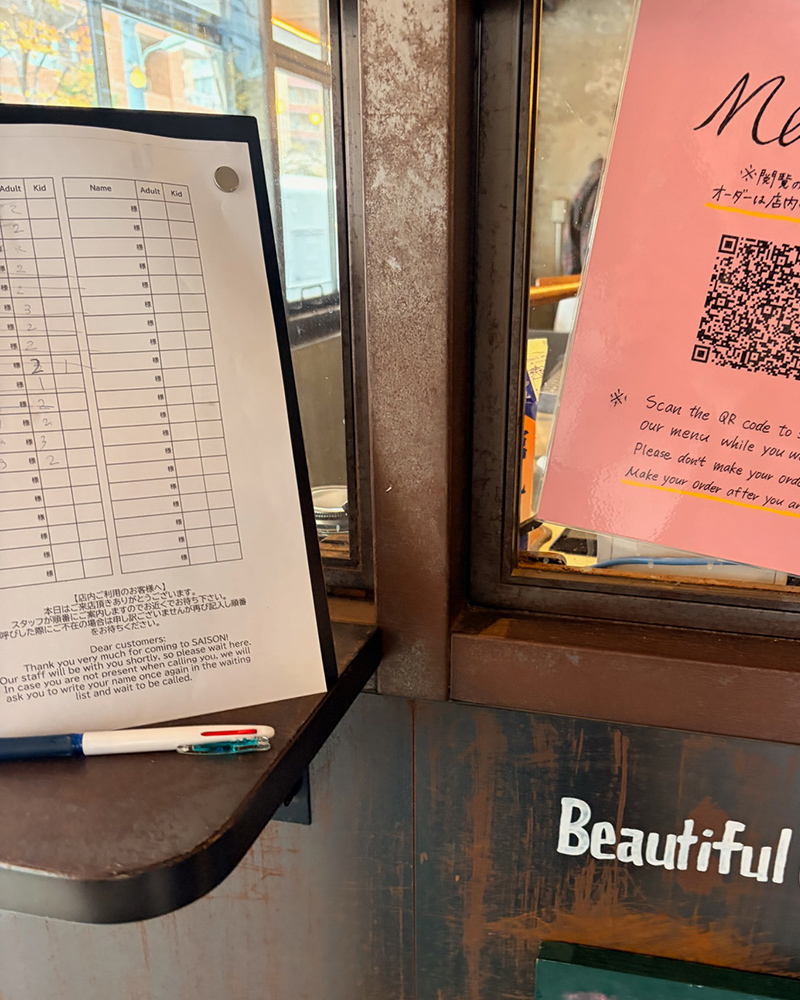 Adult Kid Name Adult Kid
2 様
2 様
様
様 2 様
様 様
様 3 様
様 2 様
様 2 様
様 2 様
様 1 様
様 2 様
様 2 様
3 様
2 様
様 様
様 様
様 様
様 様
様 様
【店内ご利用のお客様へ】
本日はご来店頂きありがとうございます。
スタッフが順番にご案内しますのでお近くでお待ち下さい。
呼びした際にご不在の場合は申し訳ございませんが再び記入し順番
をお待ちください。
Dear customers:
Thank you very much for coming to SAISON!
Our staff will be with you shortly, so please wait here.
In case you are not present when calling you, we will
ask you to write your name once again in the waiting
list and wait to be called.
※閲覧の
オーダーは店内
※ Scan the QR code to
our menu while you
Please don't make your
Make your order after you
Beautiful